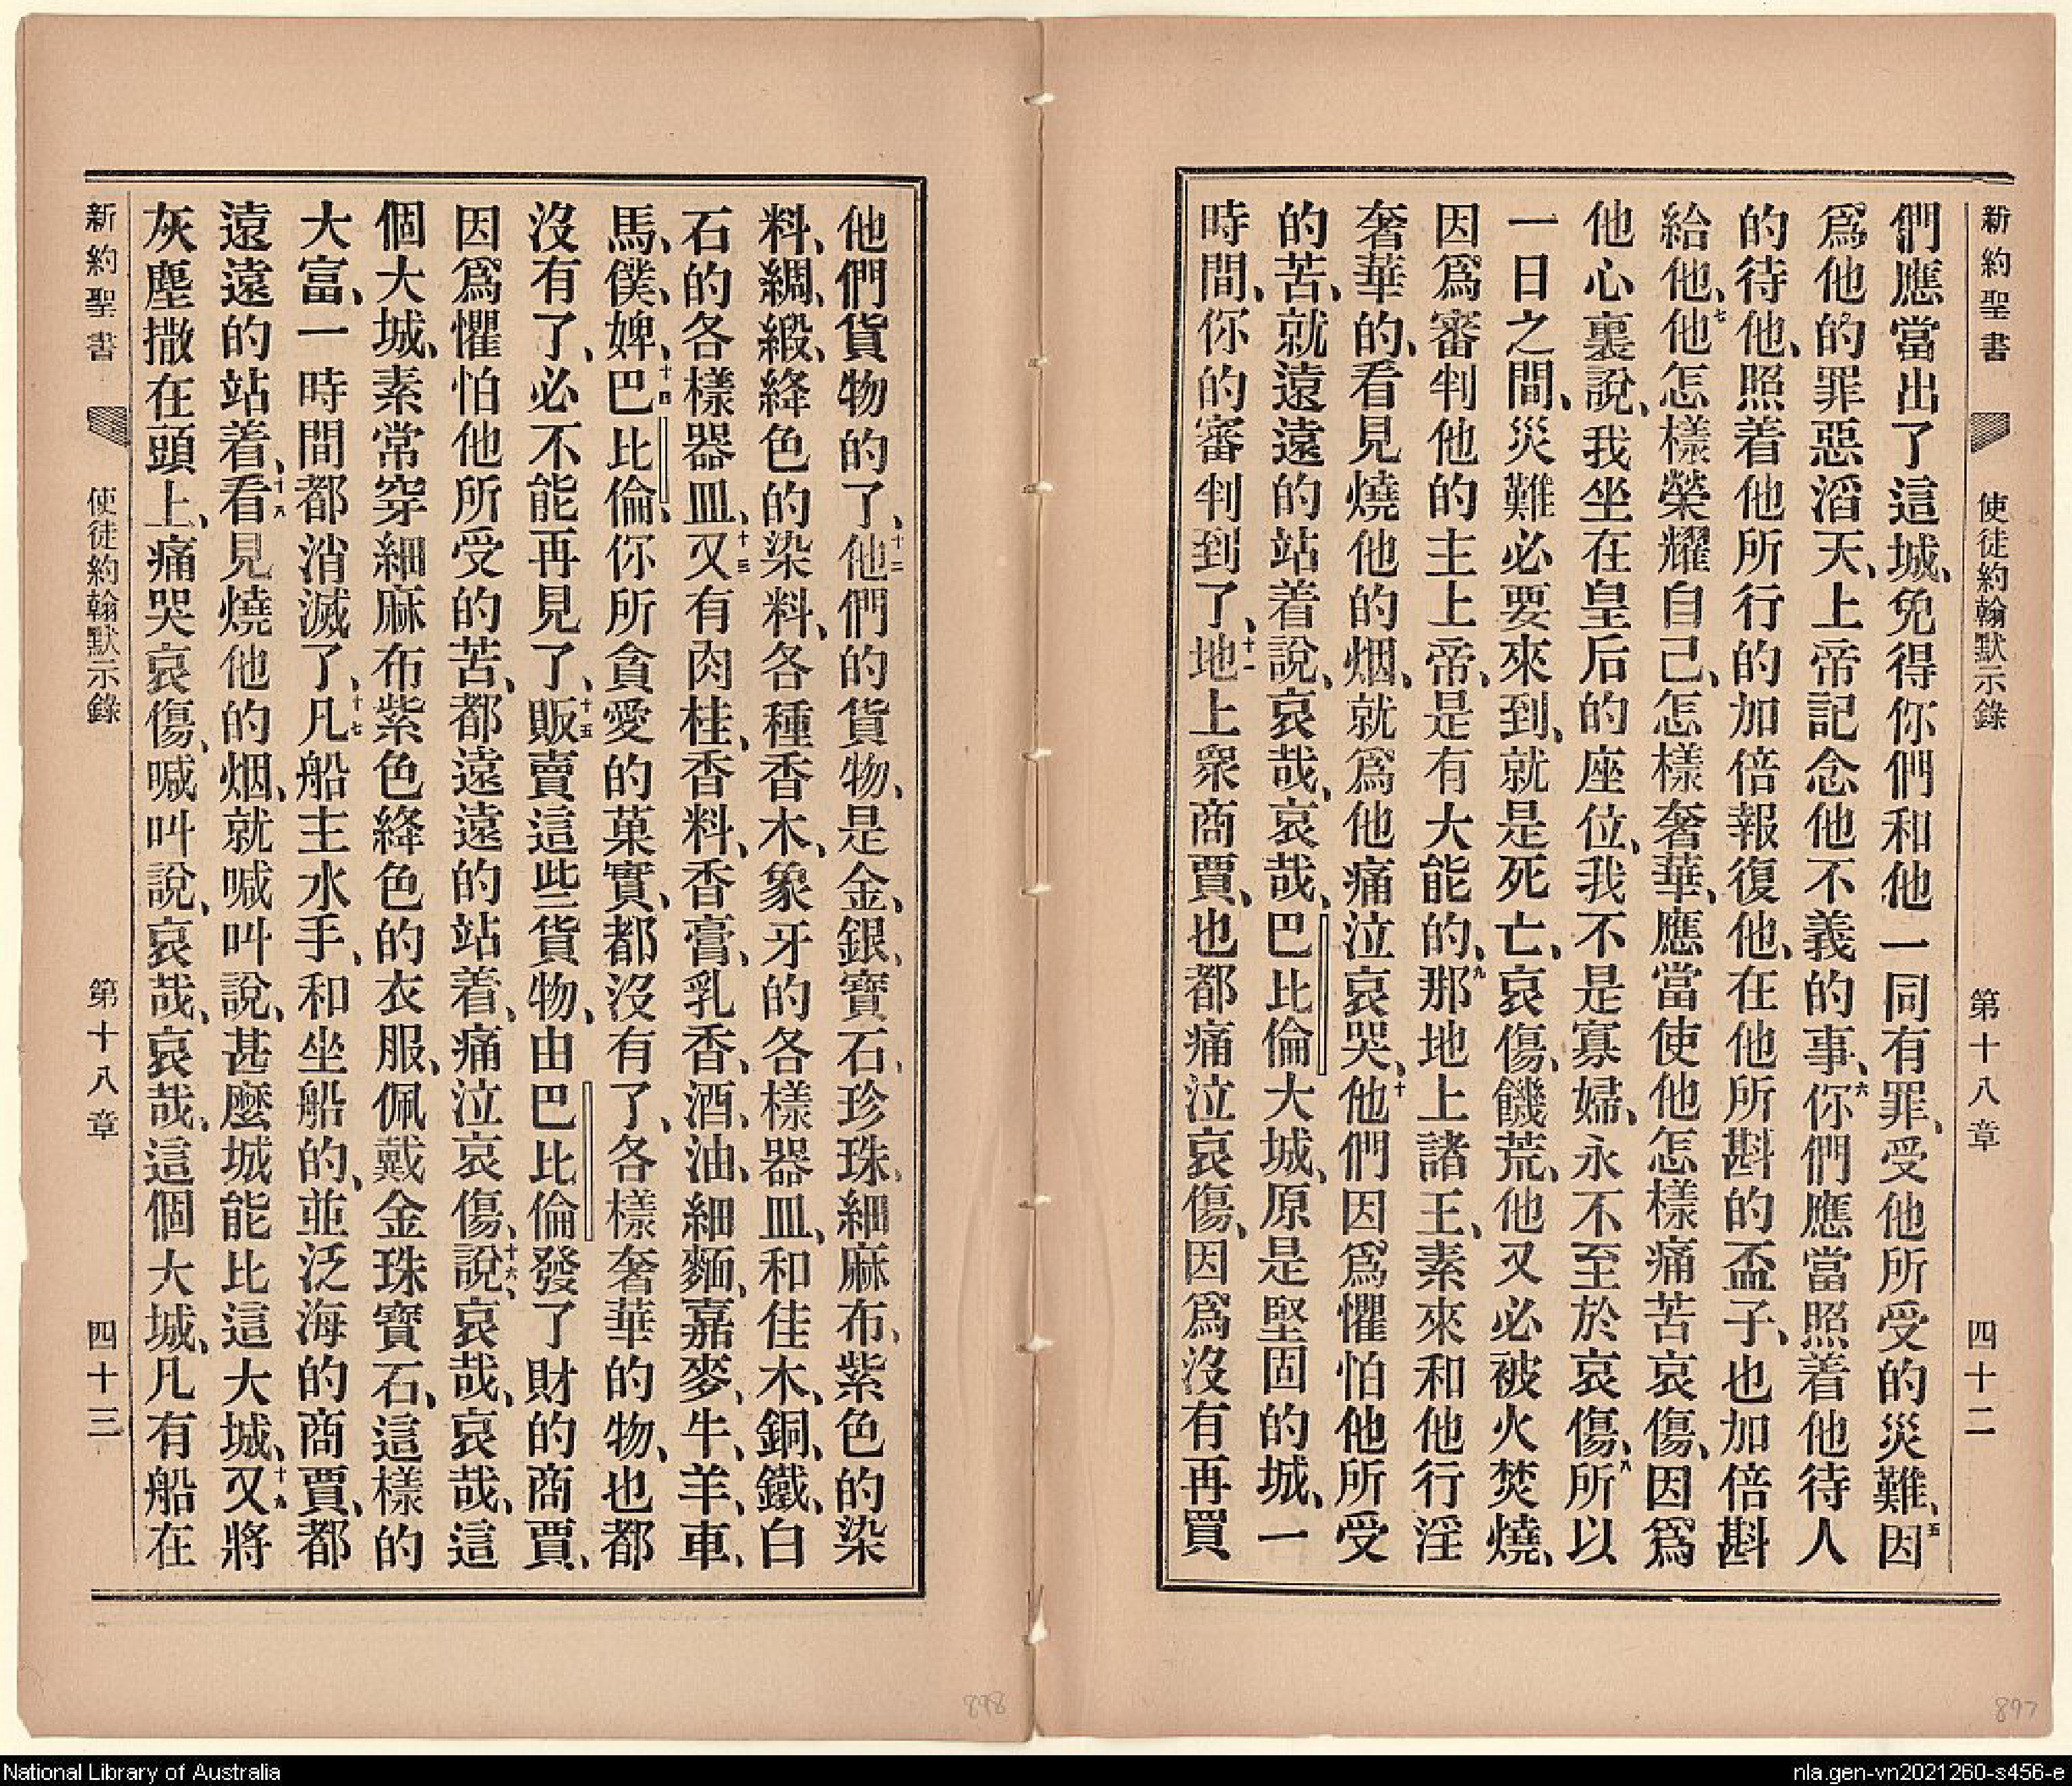 新約聖書 使徒約翰默示錄 第十八章 四十二
們應當出了這城、免得你們和他一同有罪、受他所受的災難、五因
爲他的罪惡滔天、上帝記念他不義的事、六你們應當照着他待人
的待他、照着他所行的加倍報復他、在他所斟的盃子、也加倍斟
給他、七他怎樣榮耀自己、怎樣奢華、應當使他怎樣痛苦哀傷、因爲
他心裏說、我坐在皇后的座位、我不是寡婦、永不至於哀傷、八所以
一日之間、災難必要來到、就是死亡、哀傷、饑荒、他又必被火焚燒、
因爲審判他的主上帝、是有大能的、九那地上諸王、素來和他行淫
奢華的、看見燒他的烟、就爲他痛泣哀哭、十他們因爲懼怕他所受
的苦、就遠遠的站着說、哀哉、哀哉、巴比倫大城、原是堅固的城、一
時間、你的審判到了、十一地上衆商賈、也都痛泣哀傷、因爲沒有再買
他們貨物的了、十二他們的貨物、是金、銀、寶石、珍珠、細麻布、紫色的染
料、綢、緞、絳色的染料、各種香木、象牙的各樣器皿、和佳木、銅、鐵、白
石的各樣器皿、十三又有肉桂、香料、香膏、乳香、酒、油、細麵、嘉麥、牛、羊、車、
馬、僕、婢、十四巴比倫、你所貪愛的菓實、都沒有了、各樣奢華的物、也都
沒有了、必不能再見了、十五販賣這些貨物、由巴比倫發了財的商賈、
因爲懼怕他所受的苦、都遠遠的站着、痛泣哀傷、十六說、哀哉、哀哉、這
個大城、素常穿細麻布紫色絳色的衣服、佩戴金珠寶石、這樣的
大富、一時間都消滅了、十七凡船主水手、和坐船的、並泛海的商賈、都
遠遠的站着、十八看見燒他的烟、就喊叫說、甚麼城能比這大城、十九又將
灰塵撒在頭上、痛哭哀傷、喊叫說、哀哉、哀哉、這個大城、凡有船在
新約聖書 使徒約翰默示錄 第十八章 四十三
898
897
National Library of Australia
nla.gen-vn2021260-s456-e